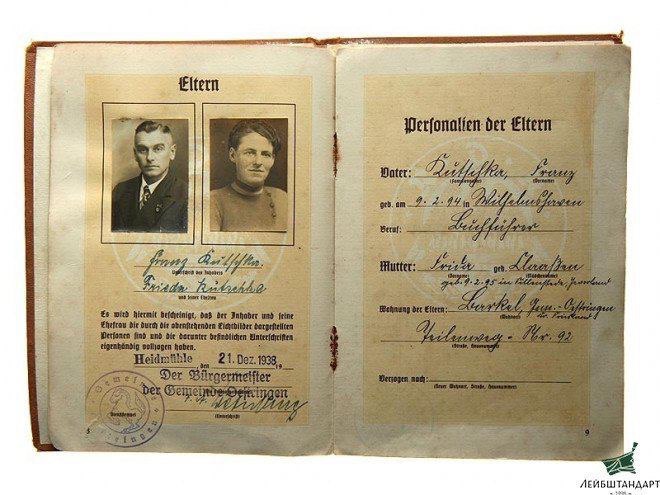 Eltern
Franz Kutschka.
Unterschrift des Inhabers
Frieda Kutschka
und seiner Ehefrau
Es wird hiermit bescheinigt, daß der Inhaber und seine
Ehefrau die durch die obenstehenden Lichtbilder dargestellten
Personen sind und die darunter befindlichen Unterschriften
eigenhändig vollzogen haben.
Heidmühle, den 21. Dez. 1938 19
Der Bürgermeister
der Gemeinde Oestringen
(Unterschrift)
9
Personalien der Eltern
Vater: Kutschka, Franz
(Familienname) (Vorname)
geb. am 9. 2. 94 in Wilhelmshaven
Beruf: Buchführer
Mutter: Frida geb. Claaßen
(Vorname) (Mädchenname)
geb. 9. 2. 95 in Sillenstede Jeverland
Wohnung der Eltern: Barkel, Gem. Oestringen
(Wohnort)
Nr. 92
(Straße, Hausnummer)
Verzogen nach:
(Neuer Wohnort, Straße, Hausnummer)
ЛЕЙБШТАНДАРТ